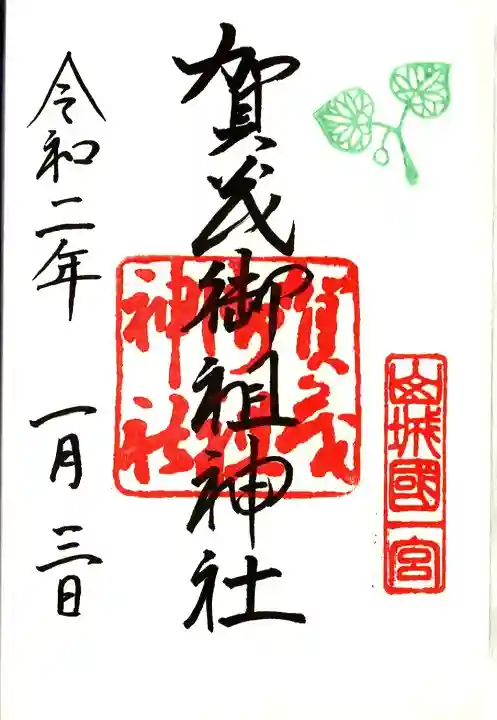 山城國一宮
賀茂御祖神社
賀茂御祖神社
令和二年 一月 三日